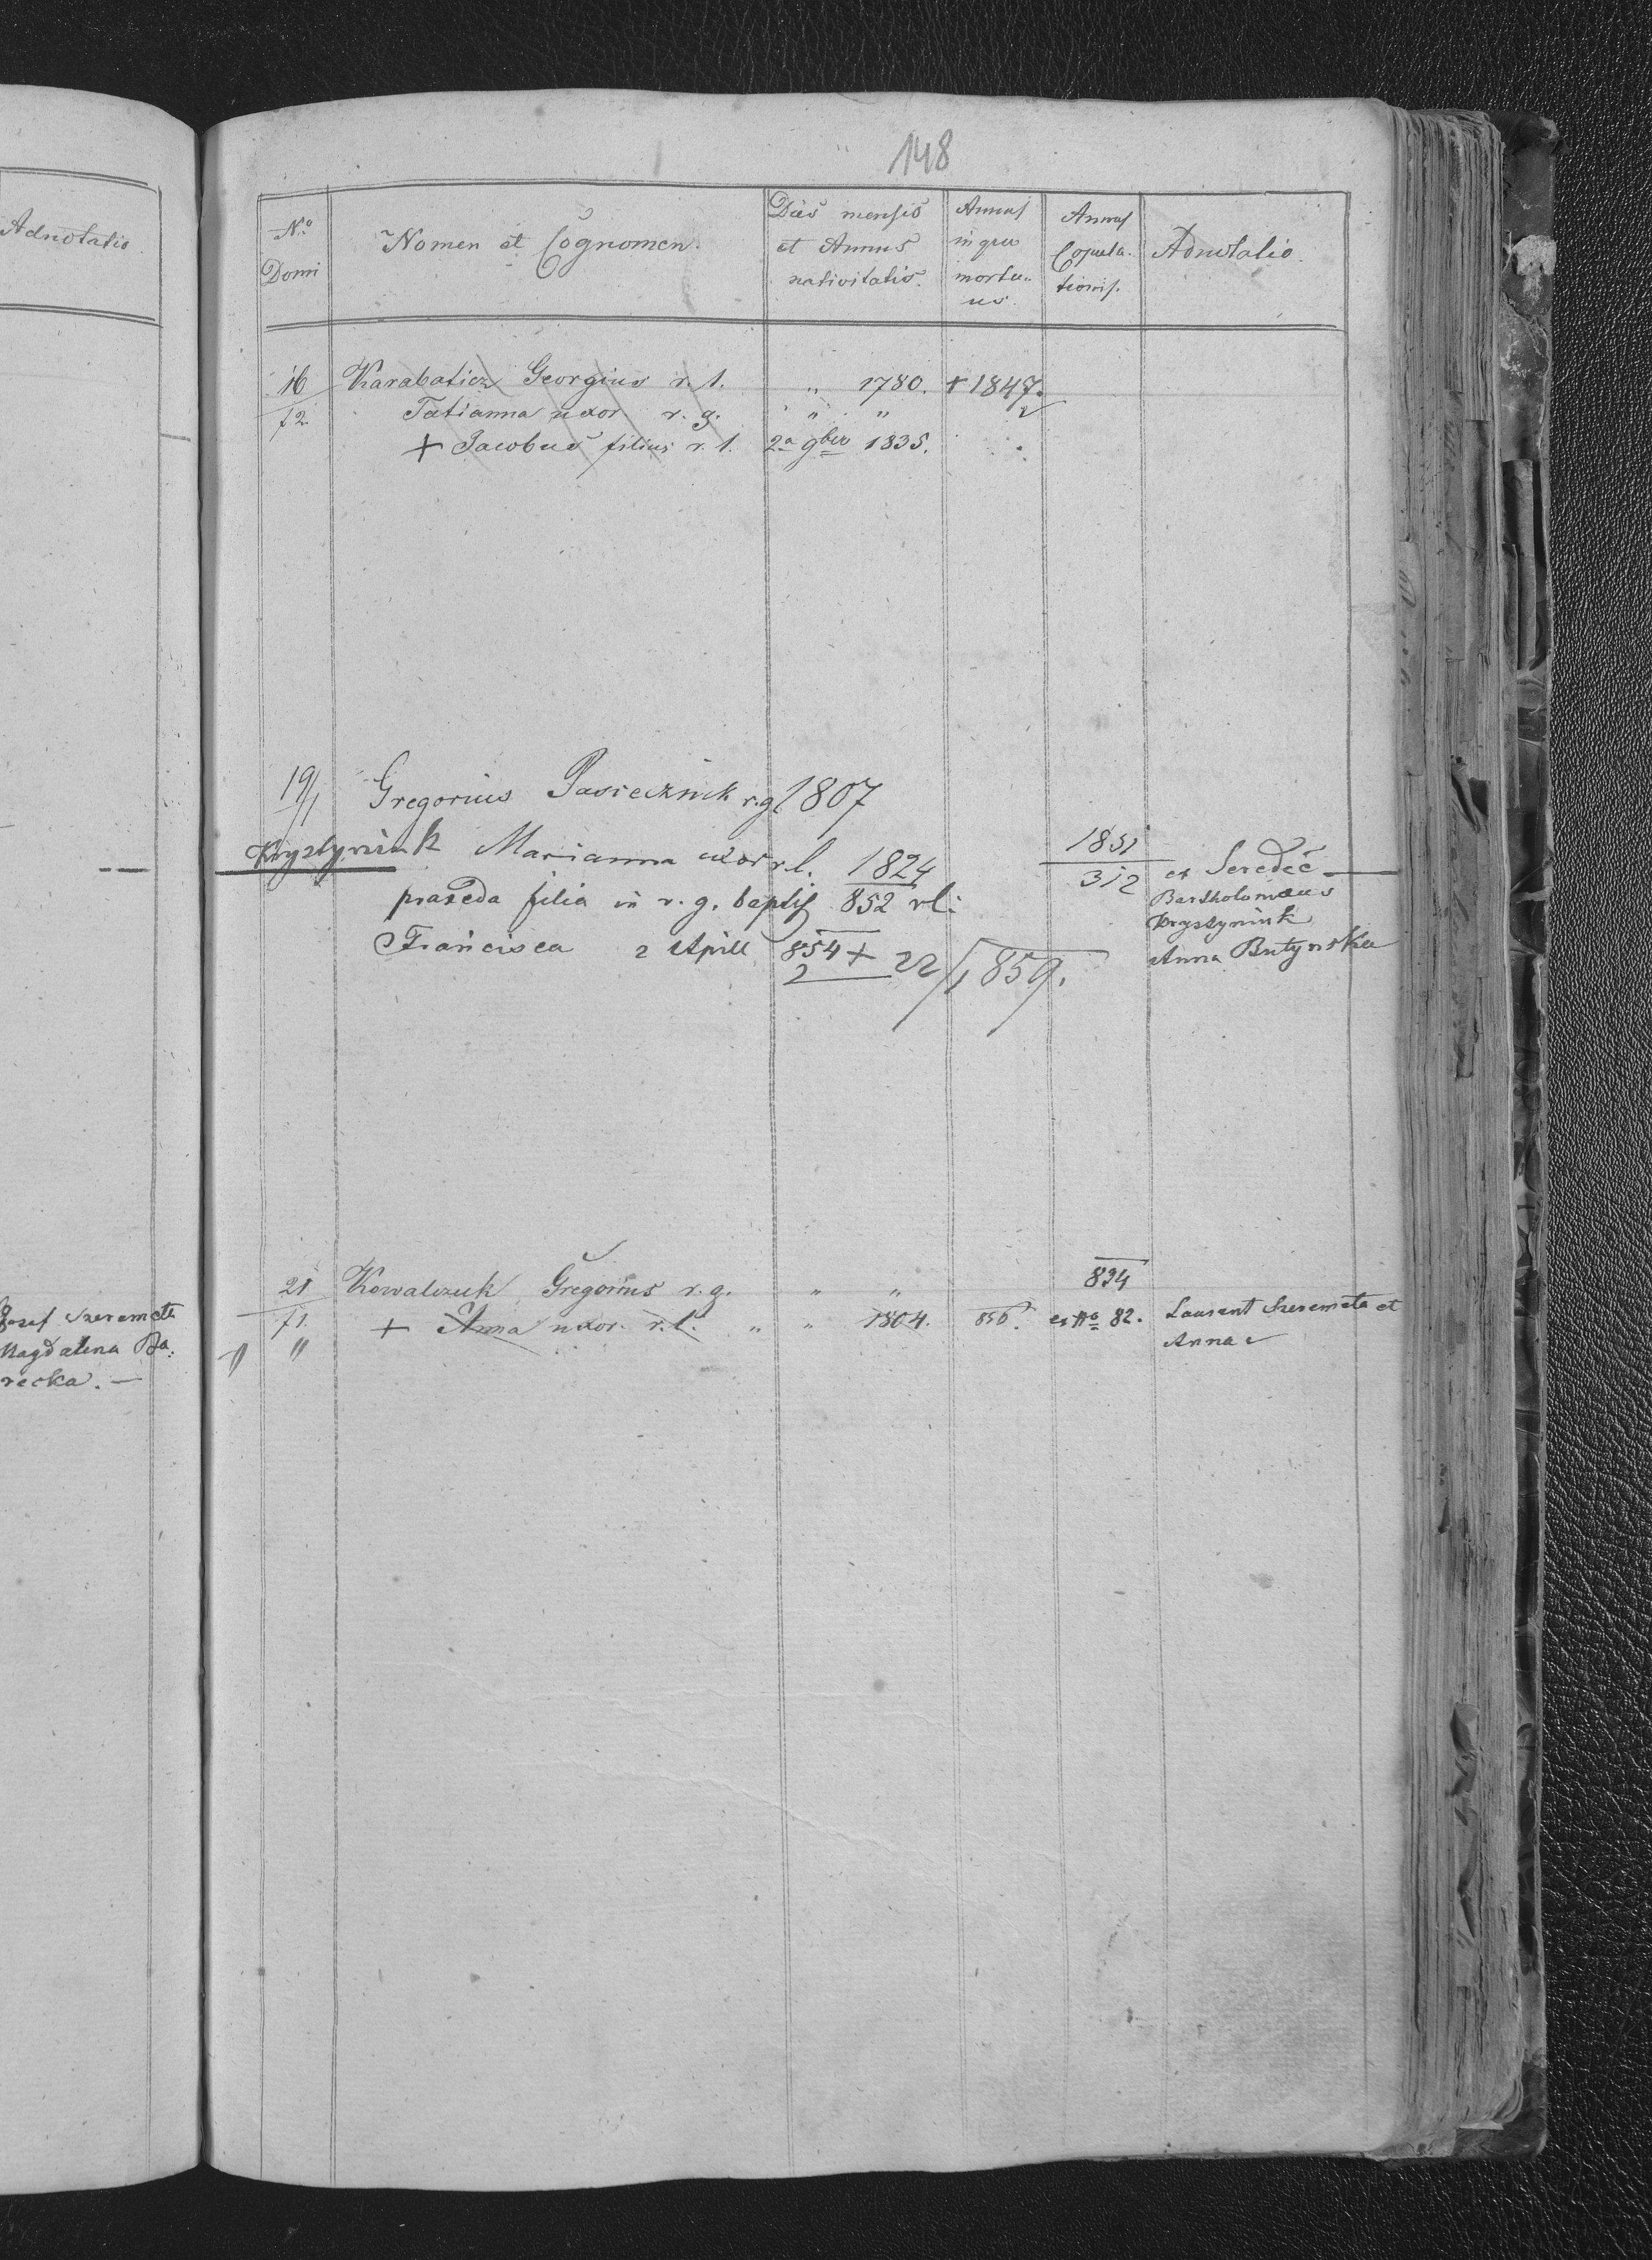 148
Adnotatio.
No. Domi
Nomen et Cognomen.
Dies mensis et Annus nativitatis.
Annus in quo mortuus.
Annus Copulationis.
Adnotatio.
16 Karabaticz Georgius r. l. „ 1780. + 1847.
72. Tatianna uxor r. g. „ „ „
+ Jacobus filius r. l. 2a 9bris 1835.
19/1 Gregorius Pasiecznik r.g 1807
Krystyniuk Marianna uxor r.l. 1824 1851
312 ex Seredec
praxeda filia in r. g. baptis 852 rl: Bartholomæus
Krystyniuk
Francisca 2 April 854 + 22/1 859. Anna Butynska
2
21 Kowalczuk Gregorius r. g. „ „ 834
71. + Anna uxor. r. l. „ „ 1804. 856. ex No 82. Laurent Szeremeta et
„ Anna
Josef Szeremeta
Magdalena Ba:
recka. —